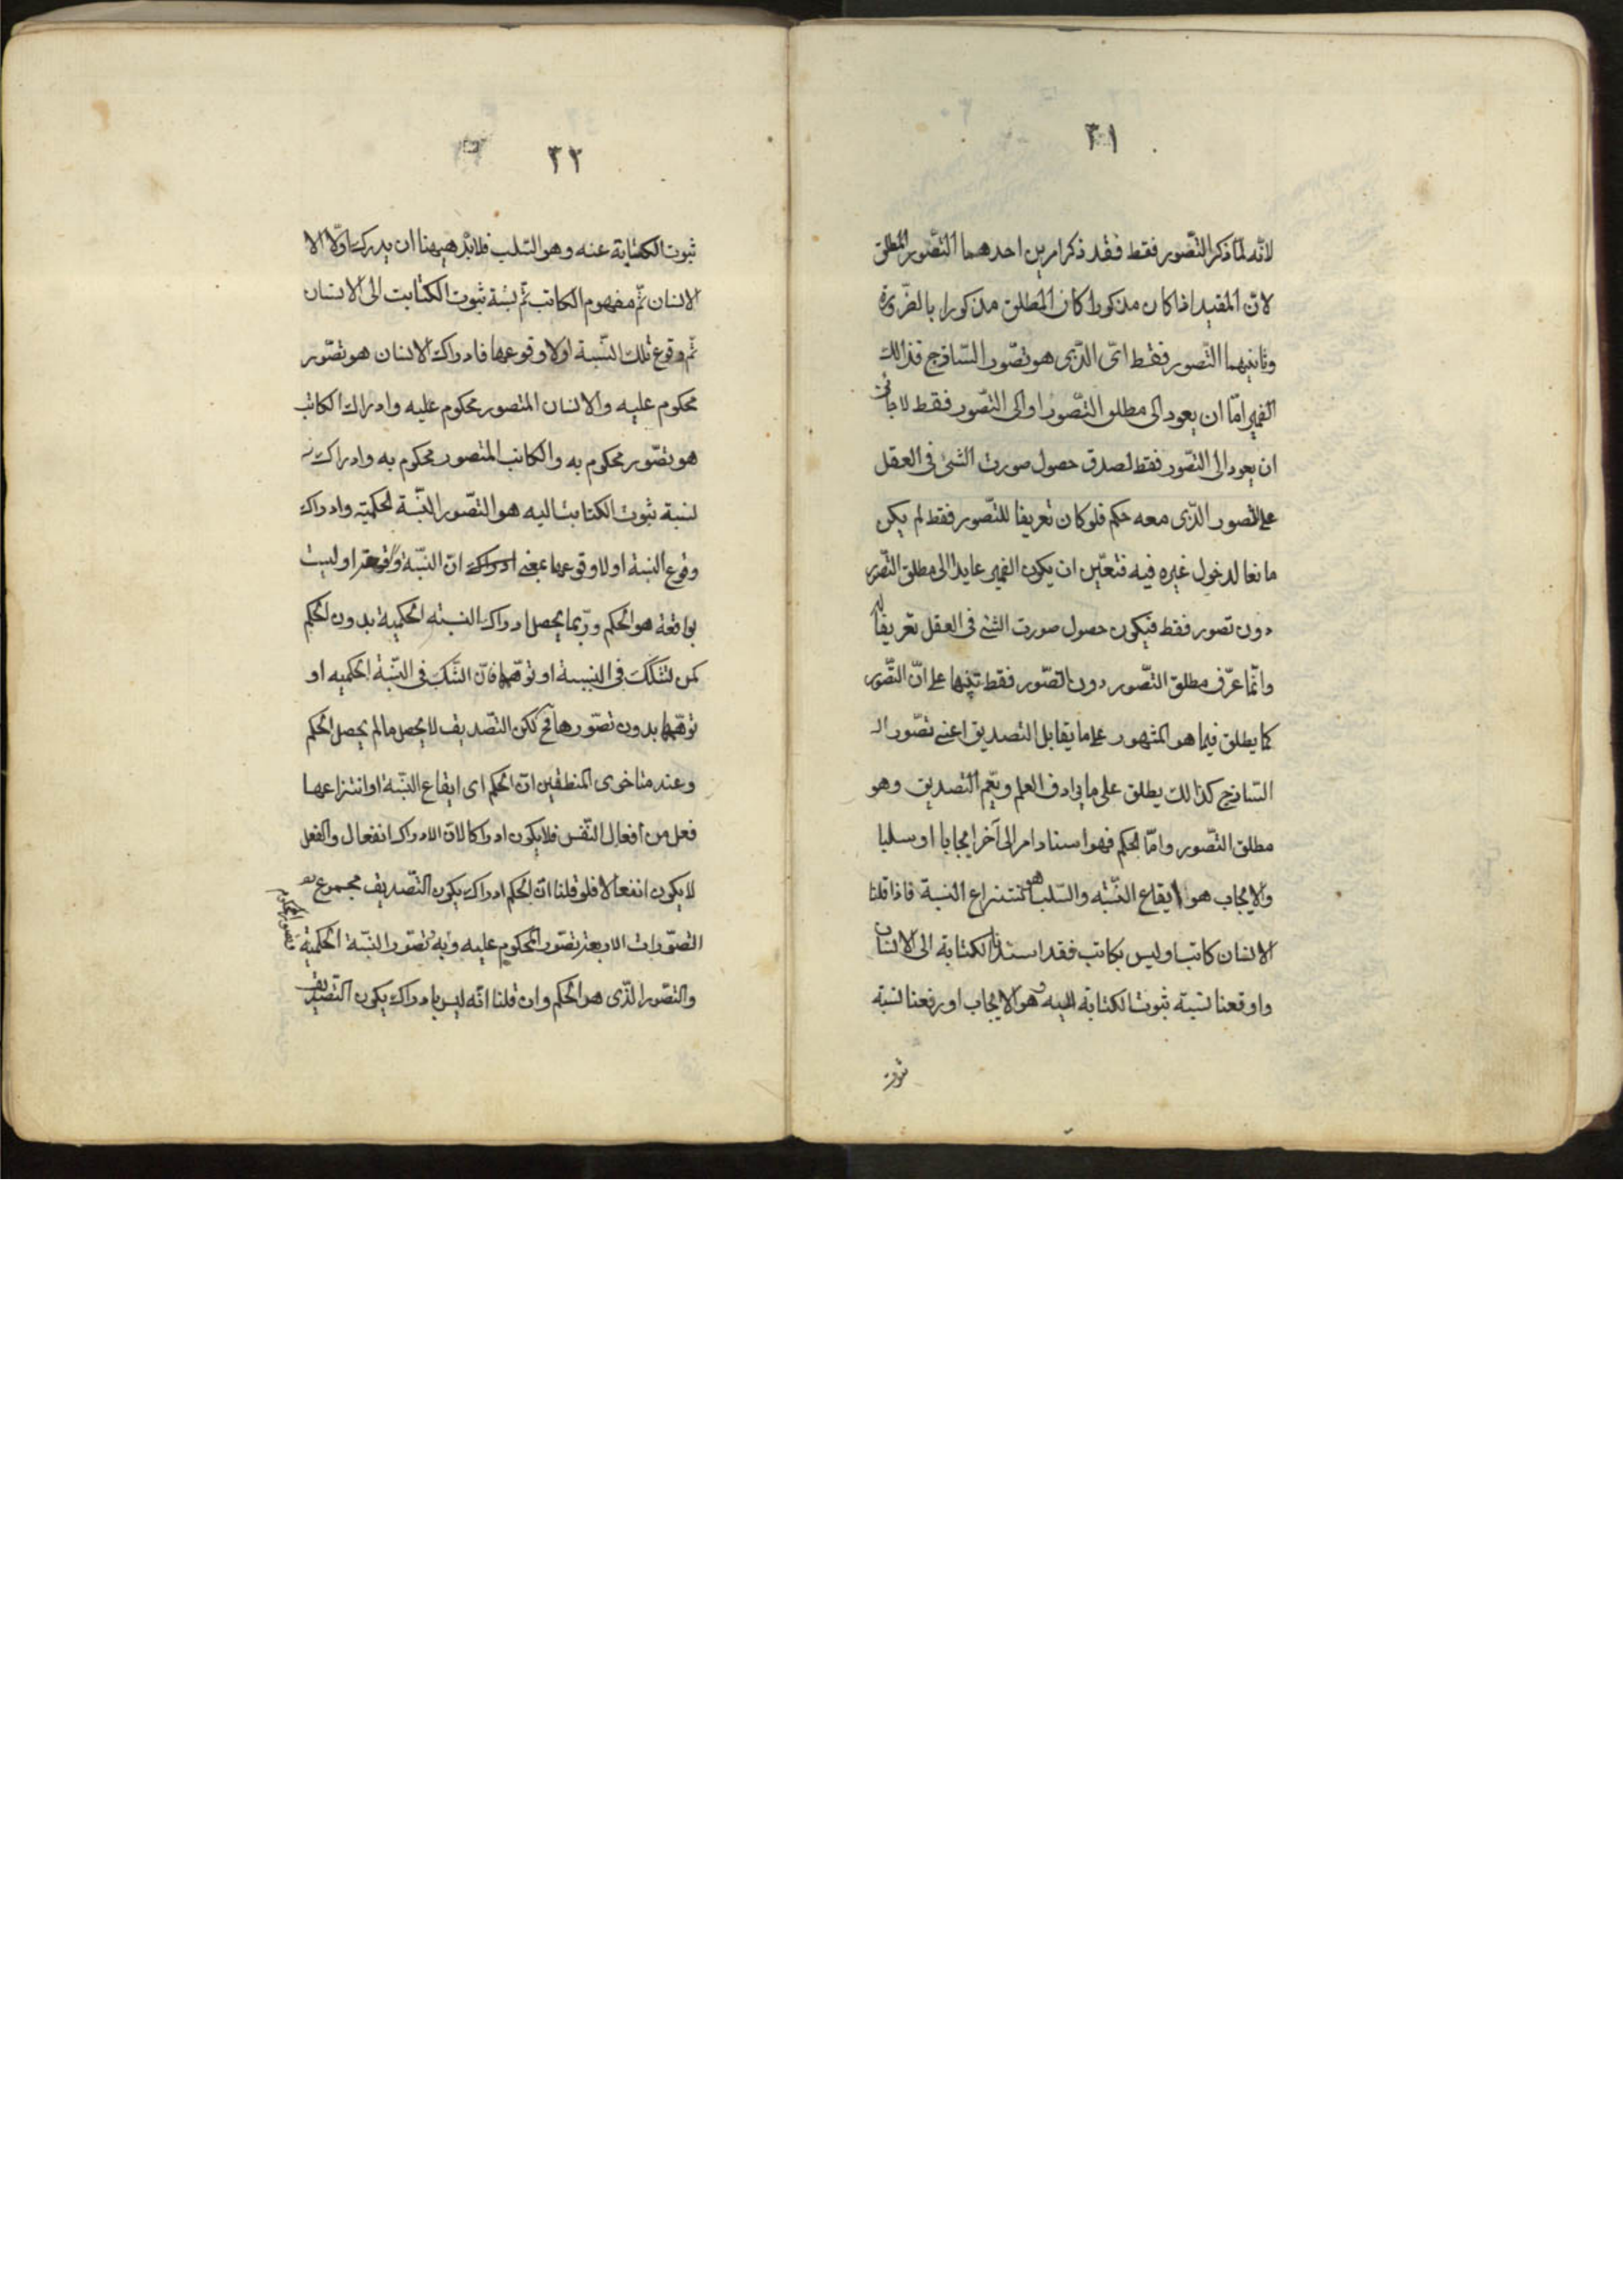 ٣١
لانّه لمّا ذكر التّصور فقط فقد ذكر امرين احدهما التّصور المطلق
لانّ المقيد اذا كان مذكورا كان المطلق مذكورا بالضّرورة
وثانيهما التّصور فقط اىّ الّذى هو تصّور السّاذج فذالك
الضمير امّا ان يعود الى مطلق التّصور او الى التّصور فقط لا جائز
ان يعود الى التصّور فقط لصدق حصول صورت الشئ فى العقل
على التصور الّذى معه حكم فلو كان تعريفا للتّصور فقط لم يكن
مانعا لدخول غيره فيه فتعيّن ان يكون الضمير عايدا الى مطلق التصّور
دون تصور فقط فيكون حصول صورت الشئ فى العقل تعريفا له
وانّما عرّف مطلق التصّور دون التصّور فقط تنبيها على انّ التصّور
كما يطلق فيما هو المشهور على ما يقابل التصديق اعنى تصّور الـ
السّاذج كذالك يطلق على ما يرادف العلم ويعّم التصديق وهو
مطلق التصّور وامّا الحكم فهو اسناد امر الى آخر ايجابا او سلبا
والايجاب هو ايقاع النسّبة والسّلب هو انتزاع النسبة فاذا قلنا
الانسان كاتب او ليس بكاتب فقد اسندنا الكتابة الى الانسان
واوقعنا نسبة ثبوت الكتابة اليه وهو الايجاب او رفعنا نسبة
ثبوت
٣٢
ثبوت الكتابة عنه وهو السّلب فلابدّ هيهنا ان يدرك اوّلا الا
الانسان ثمّ مفهوم الكاتب ثمّ نسبة ثبوت الكتابت الى الانسان
ثمّ وقوع تلك النسّبة او لا وقوعها فادراك الانسان هو تصّور
محكوم عليه والانسان المتصور محكوم عليه وادراك الكاتب
هو تصّور محكوم به والكاتب المتصور محكوم به وادراك
نسبة ثبوت الكتابت اليه هو التصّور النسّبة الحكمية وادراك
وقوع النسبة او لا وقوعها بمعنى ادراك انّ النسّبة واقعة او ليست
بواقعة هو الحكم وربّما يحصل ادراك النسبته الحكمية بدون الحكم
كمن تشكّك فى النسبة او توهّمها فانّ الشّك فى النسّبة الحكميه او
توهّمها بدون تصّورها مح لكن التّصديق لا يحصل مالم يحصل الحكم
وعند متاخرى المنطقين انّ الحكم اى ايقاع النسّبة او انتزاعها
فعل من افعال النّفس فلا يكون ادراكا لانّ الادراك انفعال والفعل
لا يكون انفعالا فلو قلنا انّ الحكم ادراك يكون التّصديق مجموع
التصّورات الاربعة تصّور المحكوم عليه وبه وتصّور النسّبة الحكمية
والتصّور الّذى هو الحكم وان قلنا انّه ليس بادراك يكون التّصديق